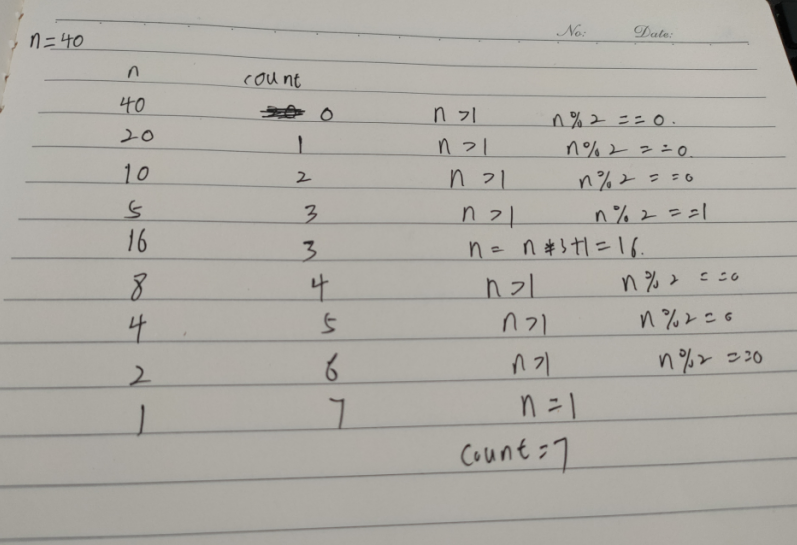 No: Date:
n=40
n count
40 0 n>1 n%2==0.
20 1 n>1 n%2==0.
10 2 n>1 n%2==0
5 3 n>1 n%2==1
16 3 n= n*3+1=16.
8 4 n>1 n%2==0
4 5 n>1 n%2=0
2 6 n>1 n%2==0
1 7 n=1
count=7